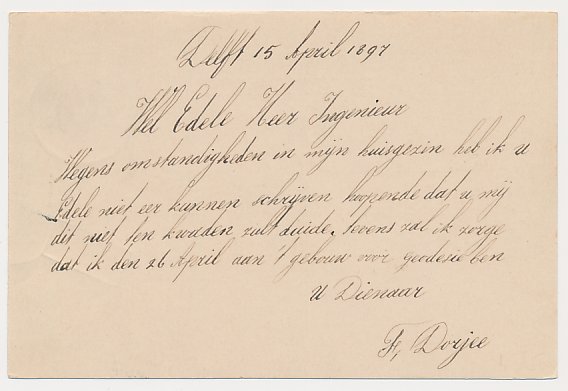 Delft 15 April 1897
Wel Edele Heer Ingenieur
Wegens omstandigheden in mijn huisgezin heb ik u
Edele niet eer kunnen schrijven hoopende dat u mij
dit niet ten kwaden zult duide. tevens zal ik zorge
dat ik den 26 April aan 't gebouw voor geodesie ben
U Dienaar
Fr, Dorjee